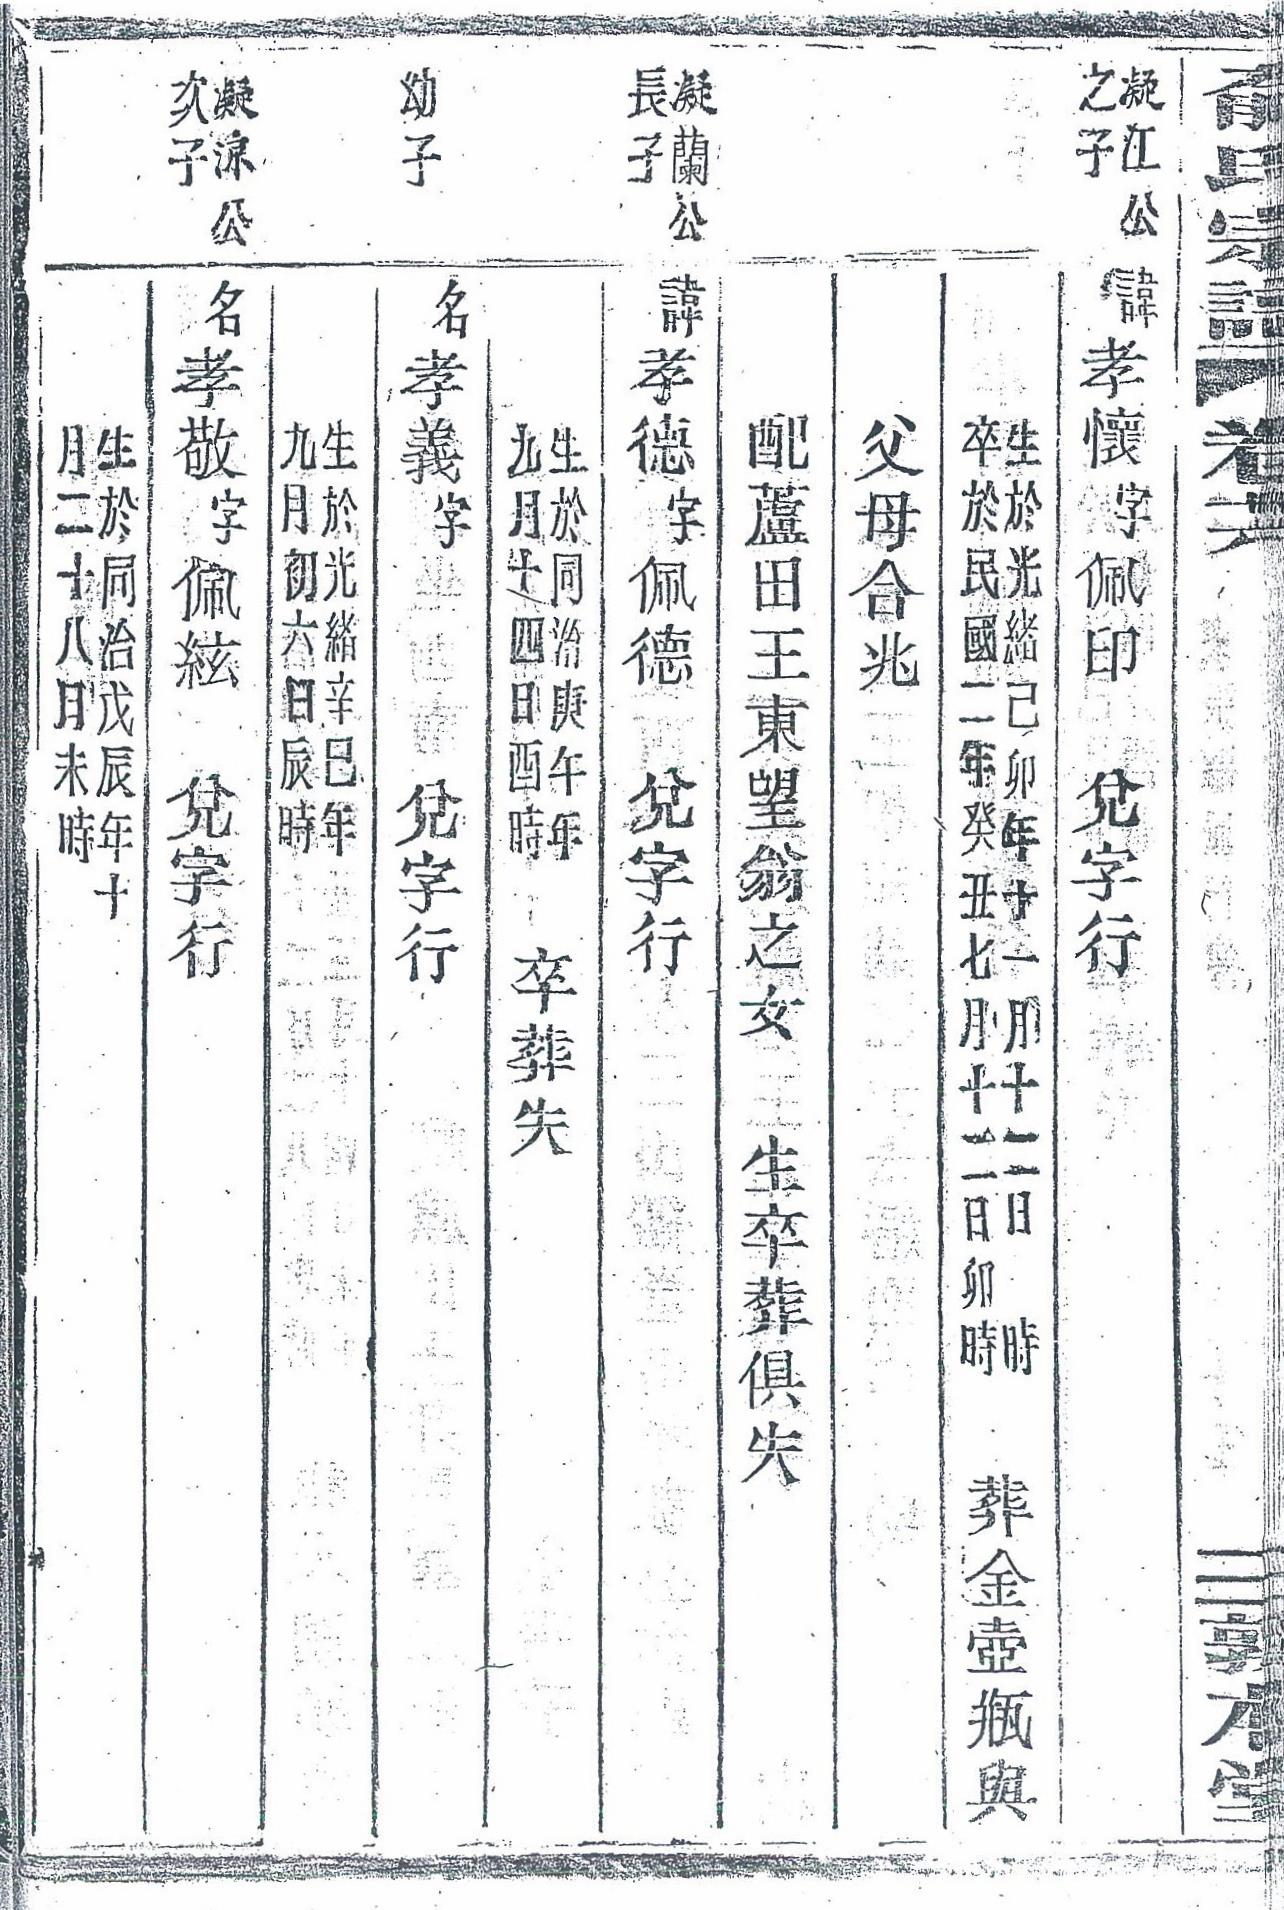 氏宗譜 卷六 敦本堂
凝江公
之子
諱孝懷字佩印 兌字行
生於光緒己卯年十一月十二日 時
卒於民國二年癸丑七月十二日卯時
葬金壺瓶與
父母合兆
配蘆田王東望翁之女 生卒葬俱失
凝蘭公
長子
諱孝德字佩德 兌字行
生於同治庚午年
九月十四日酉時
卒葬失
幼子
名孝義字 兌字行
生於光緒辛巳年
九月初六日辰時
凝涼公
次子
名孝敬字佩絃 兌字行
生於同治戊辰年十
月二十八日未時